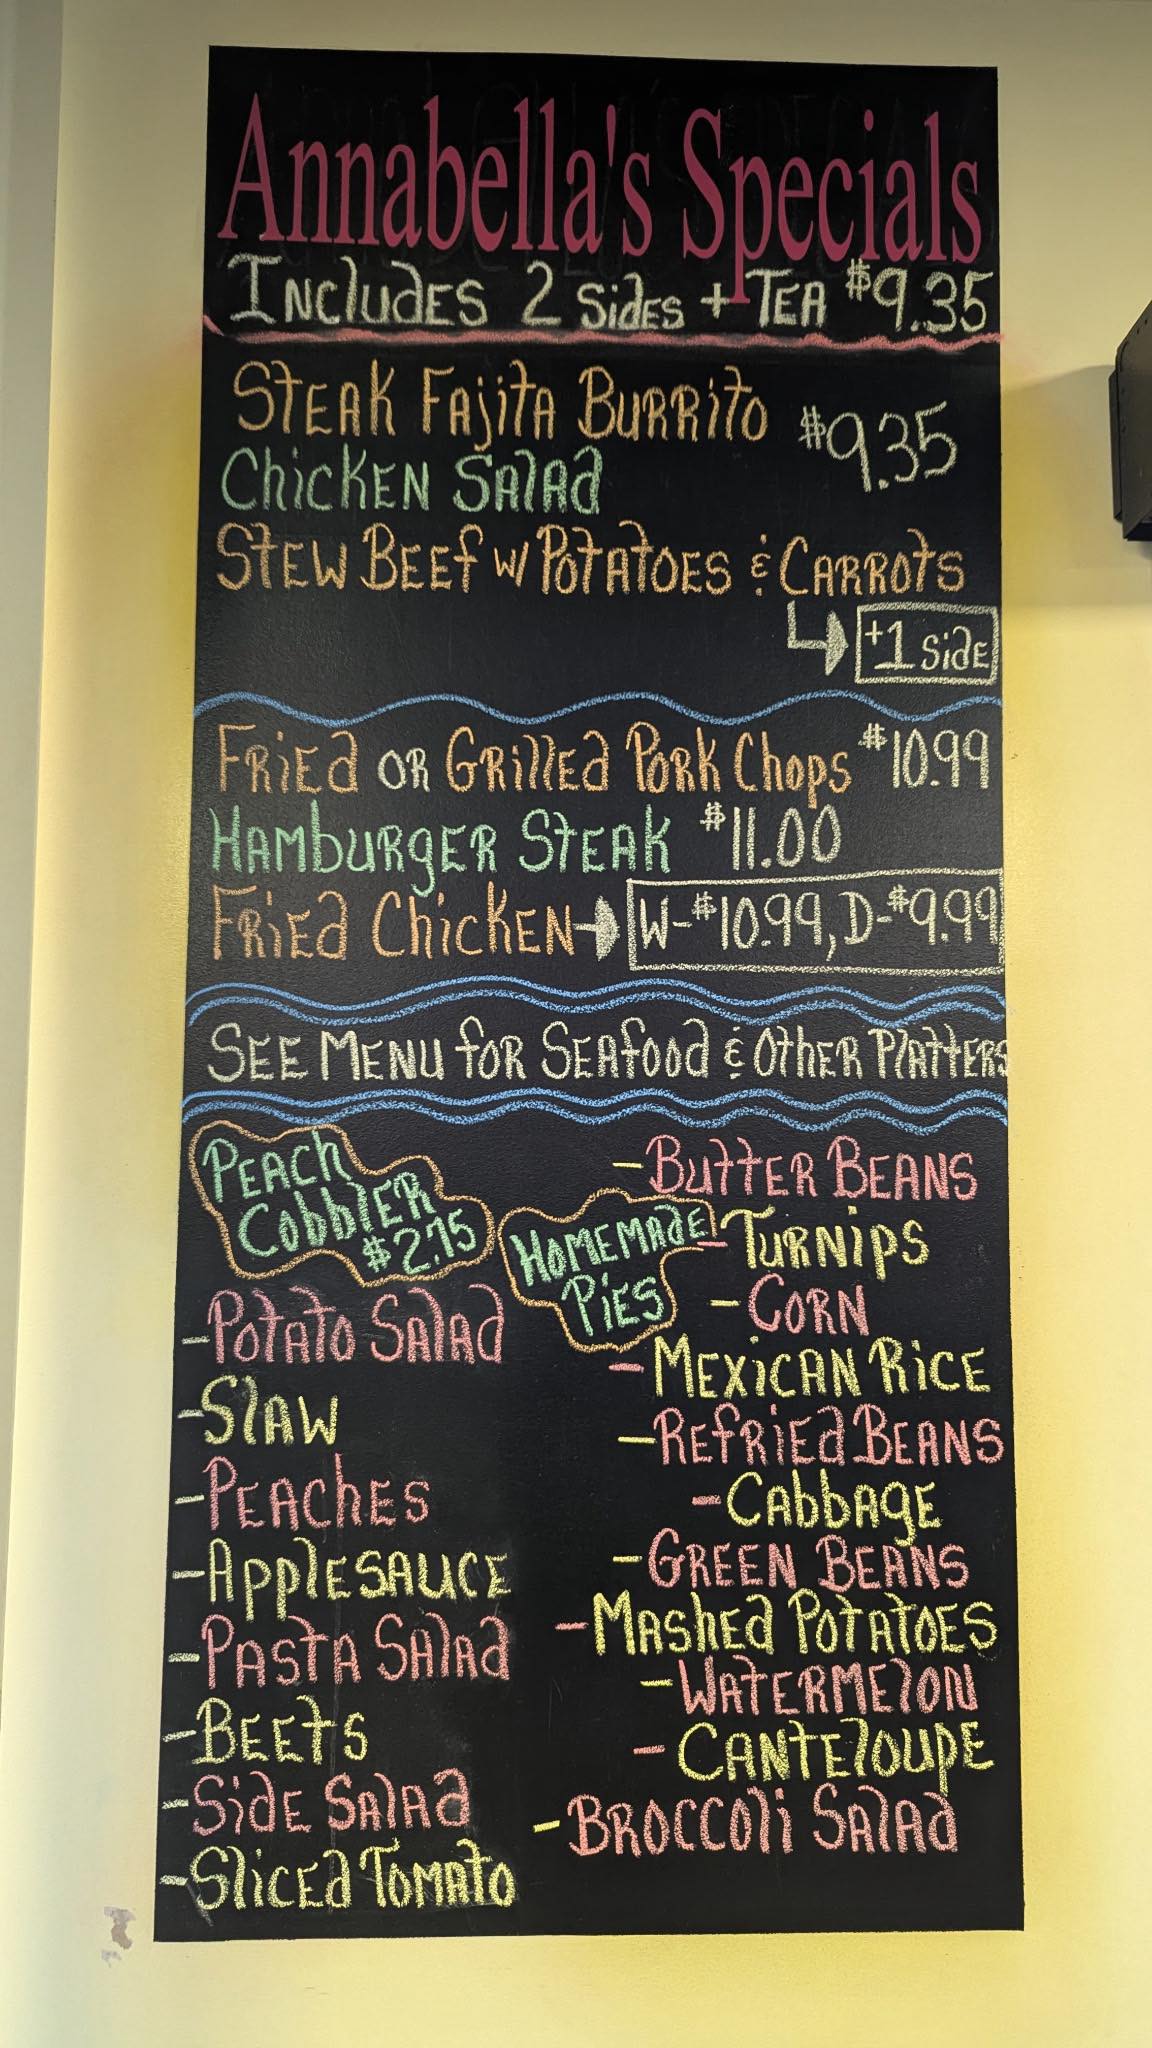 Annabella's Specials
INCludES 2 SidES + TEA $9.35
STEAK FAjitA BURRito $9.35
ChicKEN SAlAd
STEW BEEf w/ POTATOES & CARROTS
+1 SidE
FRiEd OR GRillEd PORK Chops $10.99
HAMbURgER STEAK $11.00
FRiEd ChicKEN W-$10.99, D-$9.99
SEE MENU foR SEAfood & OthER PlAttERS
PEACh
CobblER
$2.75
HOMEMAdE
PiES
-PotAto SAlAd
-SlAW
-PEAChES
-ApplESAUCE
-PASTA SAlAd
-BEEtS
-SidE SAlAd
-SlicEd TOMAto
-ButtER BEANS
-TURNipS
-CORN
-MEXiCAN RiCE
-REfRiEd BEANS
-CAbbAgE
-GREEN BEANS
-MAShEd POTATOES
-WATERMElON
-CANTElOUpE
-BROCCOli SAlAd